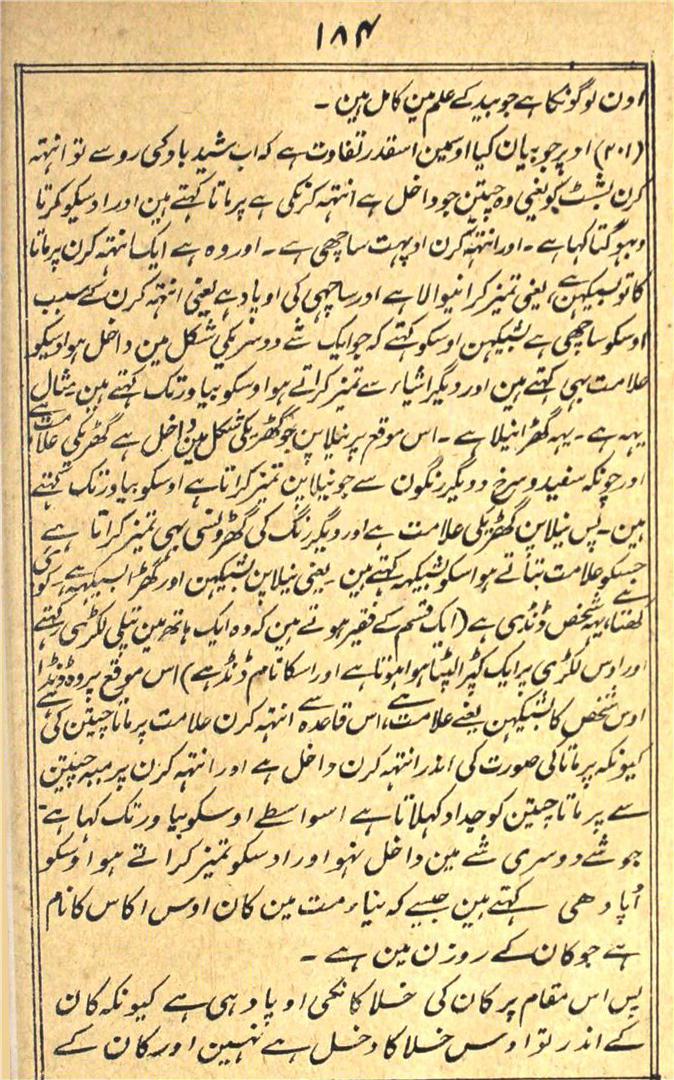 ۱۸۴
اون لوگونکا ہے جو بید کے علم مین کامل ہین ۔
(۲۰۱) اوپر جو بیان کیا اوسمین اسقدر تفاوت ہے کہ اب شیدباد کی روسے تو انتہہ
کرن بشٹ کو یعنی وہ چیتن جو داخل ہے انتہہ کرنکی ہے پرماتا کہتے ہین اور اوسکو کرتا
وبہوگتا کہا ہے ۔ اور انتہہ کرن اوپہت ساچھی ہے ۔ اور وہ ہے ایک انتہہ کرن پرماتا
کا تو بسیکہن ہے، یعنی تمیز کرانیوالا ہے اور ساچہی کی اوپاد ہے یعنی انتہہ کرن کے سبب
اوسکو ساچھی ہے بشیکہن اوسکو کہتے کہ جو ایک شے دوسریکی شکل مین داخل ہو اوسکو
علامت بہی کہتے ہین اور دیگر اشیاء سے تمیز کراتے ہو اوسکو بیاورتک کہتے ہین مثال
یہہ ہے ۔ یہہ گھڑا نیلا ہے ۔ اس موقع پر نیلاپن جو گھڑیکی شکل مین داخل ہے گھڑیکی علامت ہے
اور چونکہ سفید وسرخ و دیگر رنگون سے جو نیلاپن تمیز کراتا ہے اوسکو بیاورتک کہتے
ہین ۔ پس نیلاپن گھڑیکی علامت ہے اور دیگر رنگ کی گھڑونسی بہی تمیز کراتا ہے
جسکو علامت بتاتے ہو اسکو بشیکہہ کہتے ہین ۔ یعنی نیلاپن بشیکہن اور گھڑا بسیکہہ ہے ۔ کوئی
کہتا ہے، یہہ شخص ڈنڈہی ہے (ایک قسم کے فقیر ہوتے ہین کہ وہ ایک ہاتھ مین پتلی لکڑہی رکہتے
اور اوس لکڑی پر ایک کپڑا لپٹا ہوا ہوتا ہے اور اسکا نام ڈنڈ ہے) اس موقع پر وہ ڈنڈا
اوس شخص کا بشیکہن یعنے علامت ہے، اس قاعدہ سے انتہہ کرن علامت پرماتا چیتن کی ہے
کیونکہ پرماتا کی صورت کی اندر انتہہ کرن داخل ہے اور انتہہ کرن پرمیہ چیتن
سے پرماتا چیتن کو جداو کہلاتا ہے اسواسطے اوسکو بیاورتک کہا ہے ۔
جو شے دوسری شے مین داخل نہو اور اوسکو تمیز کراتے ہو اوسکو
اُپادھی کہتے ہین جیسے کہ نیاء مت مین کان اوس اکاس کا نام
ہے جو کان کے روزن مین ہے ۔
پس اس مقام پر کان کی خلا کانکی اوپادہی ہے کیونکہ کان
کے اندر تو اوس خلا کا دخل ہے نہین اور کان کے